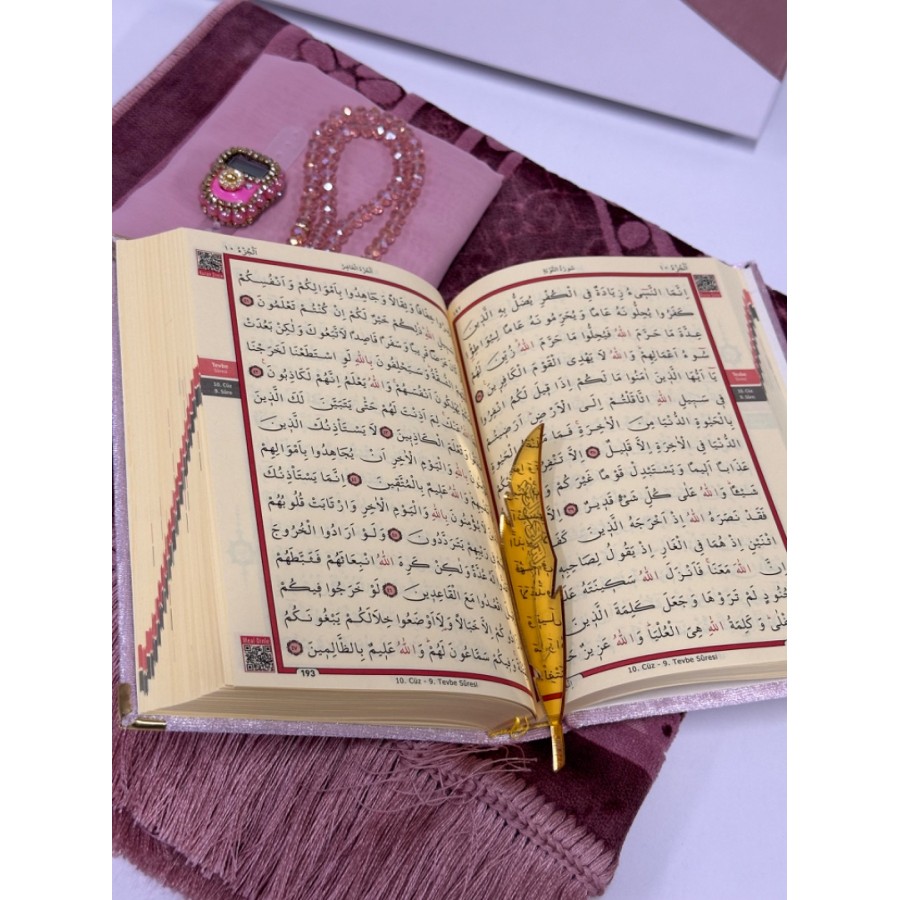 اَلْجُزْءُ ١٠
سُورَةُ التَّوْبَةِ
اِنَّمَا النَّسِٓيءُ زِيَادَةٌ فِي الْكُفْرِ يُضَلُّ بِهِ الَّذِينَ
كَفَرُوا يُحِلُّونَهُ عَاماً وَيُحَرِّمُونَهُ عَاماً لِيُوَاطِؤُ۫ا
عِدَّةَ مَا حَرَّمَ اللّٰهُ فَيُحِلُّوا مَا حَرَّمَ اللّٰهُ زُيِّنَ لَهُمْ
سُوءُ اَعْمَالِهِمْ وَاللّٰهُ لَا يَهْدِي الْقَوْمَ الْكَافِرِينَ
يَا اَيُّهَا الَّذِينَ اٰمَنُوا مَا لَكُمْ اِذَا قِيلَ لَكُمُ انْفِرُوا
فِي سَبِيلِ اللّٰهِ اثَّاقَلْتُمْ اِلَى الْاَرْضِ اَرَضِيتُمْ
بِالْحَيٰوةِ الدُّنْيَا مِنَ الْاٰخِرَةِ فَمَا مَتَاعُ
الدُّنْيَا فِي الْاٰخِرَةِ اِلَّا قَلِيلٌ اِلَّا تَنْفِرُوا
عَذَاباً اَلِيماً وَيَسْتَبْدِلْ قَوْماً غَيْرَكُمْ
شَيْـٔاً وَاللّٰهُ عَلٰى كُلِّ شَيْءٍ قَدِيرٌ
فَقَدْ نَصَرَهُ اللّٰهُ اِذْ اَخْرَجَهُ الَّذِينَ
اثْنَيْنِ اِذْ هُمَا فِي الْغَارِ اِذْ يَقُولُ لِصَاحِبِهِ
اِنَّ اللّٰهَ مَعَنَا فَاَنْزَلَ اللّٰهُ سَكِينَتَهُ عَلَيْهِ
بِجُنُودٍ لَمْ تَرَوْهَا وَجَعَلَ كَلِمَةَ الَّذِينَ
السُّفْلٰى وَكَلِمَةُ اللّٰهِ هِيَ الْعُلْيَا وَاللّٰهُ عَزِيزٌ
10. Cüz - 9. Tevbe Sûresi
Tevbe
Sûresi
10. Cüz
9. Sûre
اَلْجُزْءُ ١٠
اَلْجُزْءُ الْعَاشِرُ
وَثِقَالاً وَجَاهِدُوا بِاَمْوَالِكُمْ وَاَنْفُسِكُمْ
ذٰلِكُمْ خَيْرٌ لَكُمْ اِنْ كُنْتُمْ تَعْلَمُونَ
عَرَضاً قَرِيباً وَسَفَراً قَاصِداً لَاتَّبَعُوكَ وَلٰكِنْ بَعُدَتْ
الشُّقَّةُ وَسَيَحْلِفُونَ بِاللّٰهِ لَوِ اسْتَطَعْنَا لَخَرَجْنَا
يُهْلِكُونَ اَنْفُسَهُمْ وَاللّٰهُ يَعْلَمُ اِنَّهُمْ لَكَاذِبُونَ
عَنْكَ لِمَ اَذِنْتَ لَهُمْ حَتّٰى يَتَبَيَّنَ لَكَ الَّذِينَ
وَتَعْلَمَ الْكَاذِبِينَ لَا يَسْتَأْذِنُكَ الَّذِينَ
بِاللّٰهِ وَالْيَوْمِ الْاٰخِرِ اَنْ يُجَاهِدُوا بِاَمْوَالِهِمْ
وَاللّٰهُ عَلِيمٌ بِالْمُتَّقِينَ اِنَّمَا يَسْتَأْذِنُكَ
يُؤْمِنُونَ بِاللّٰهِ وَالْيَوْمِ الْاٰخِرِ وَارْتَابَتْ قُلُوبُهُمْ
رَيْبِهِمْ يَتَرَدَّدُونَ وَلَوْ اَرَادُوا الْخُرُوجَ
عُدَّةً وَلٰكِنْ كَرِهَ اللّٰهُ انْبِعَاثَهُمْ فَثَبَّطَهُمْ
اقْعُدُوا مَعَ الْقَاعِدِينَ لَوْ خَرَجُوا فِيكُمْ
اِلَّا خَبَالاً وَلَا۬اَوْضَعُوا خِلَالَكُمْ يَبْغُونَكُمُ
وَفِيكُمْ سَمَّاعُونَ لَهُمْ وَاللّٰهُ عَلِيمٌ بِالظَّالِمِينَ
193
10. Cüz - 9. Tevbe Sûresi
Tevbe
Sûresi
10. Cüz
9. Sûre